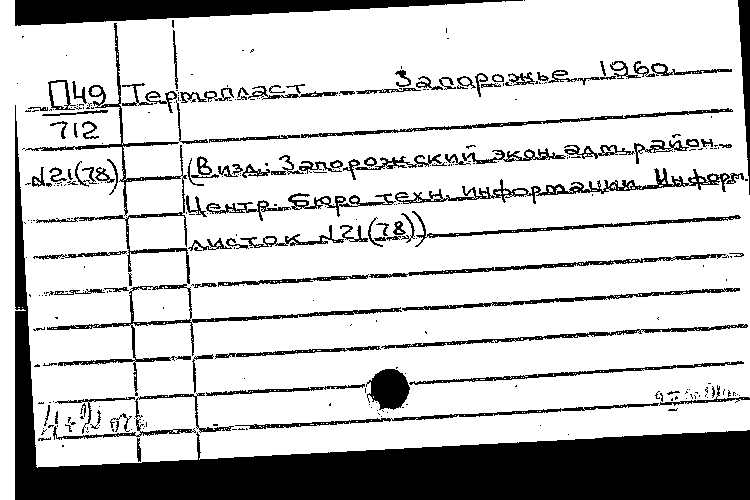 П49 Термопласт. Запорожье, 1960.
712
№21(78) (В изд.: Запорожский экон. адм. район.
Центр. бюро техн. информации. Информ.
листок №21(78))
4+2